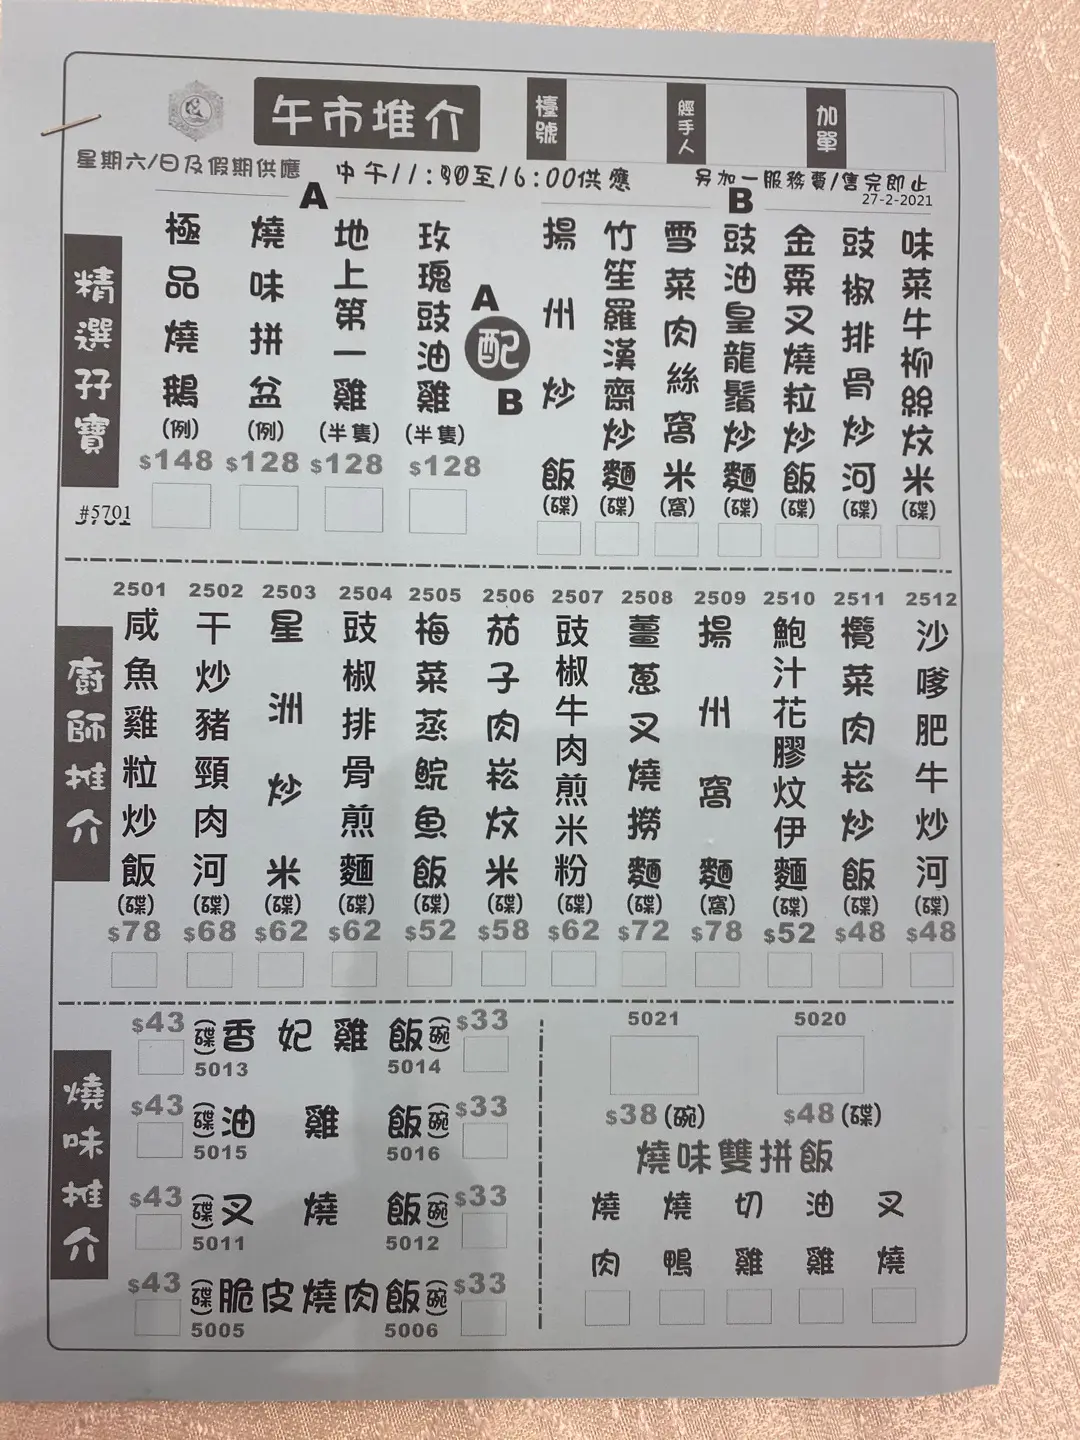 午市推介
檯號
經手人
加單
星期六/日及假期供應
中午11:30至16:00供應
另加一服務費/售完即止
27-2-2021
精選孖寶
#5701
A
極品燒鵝(例)
$148
燒味拼盆(例)
$128
地上第一雞(半隻)
$128
玫瑰豉油雞(半隻)
$128
A
配
B
B
揚州炒飯(碟)
竹笙羅漢齋炒麵(碟)
雪菜肉絲窩米(窩)
豉油皇龍鬚炒麵(碟)
金粟叉燒粒炒飯(碟)
豉椒排骨炒河(碟)
味菜牛柳絲炆米(碟)
廚師推介
2501
咸魚雞粒炒飯(碟)
$78
2502
干炒豬頸肉河(碟)
$68
2503
星洲炒米(碟)
$62
2504
豉椒排骨煎麵(碟)
$62
2505
梅菜蒸鯇魚飯(碟)
$52
2506
茄子肉崧炆米(碟)
$58
2507
豉椒牛肉煎米粉(碟)
$62
2508
薑蔥叉燒撈麵(碟)
$72
2509
揚州窩麵(窩)
$78
2510
鮑汁花膠炆伊麵(碟)
$52
2511
欖菜肉崧炒飯(碟)
$48
2512
沙嗲肥牛炒河(碟)
$48
燒味推介
$43 (碟)香妃雞飯(碗) $33
5013 5014
$43 (碟)油雞飯(碗) $33
5015 5016
$43 (碟)叉燒飯(碗) $33
5011 5012
$43 (碟)脆皮燒肉飯(碗) $33
5005 5006
5021 5020
$38(碗) $48(碟)
燒味雙拼飯
燒肉
燒鴨
切雞
油雞
叉燒